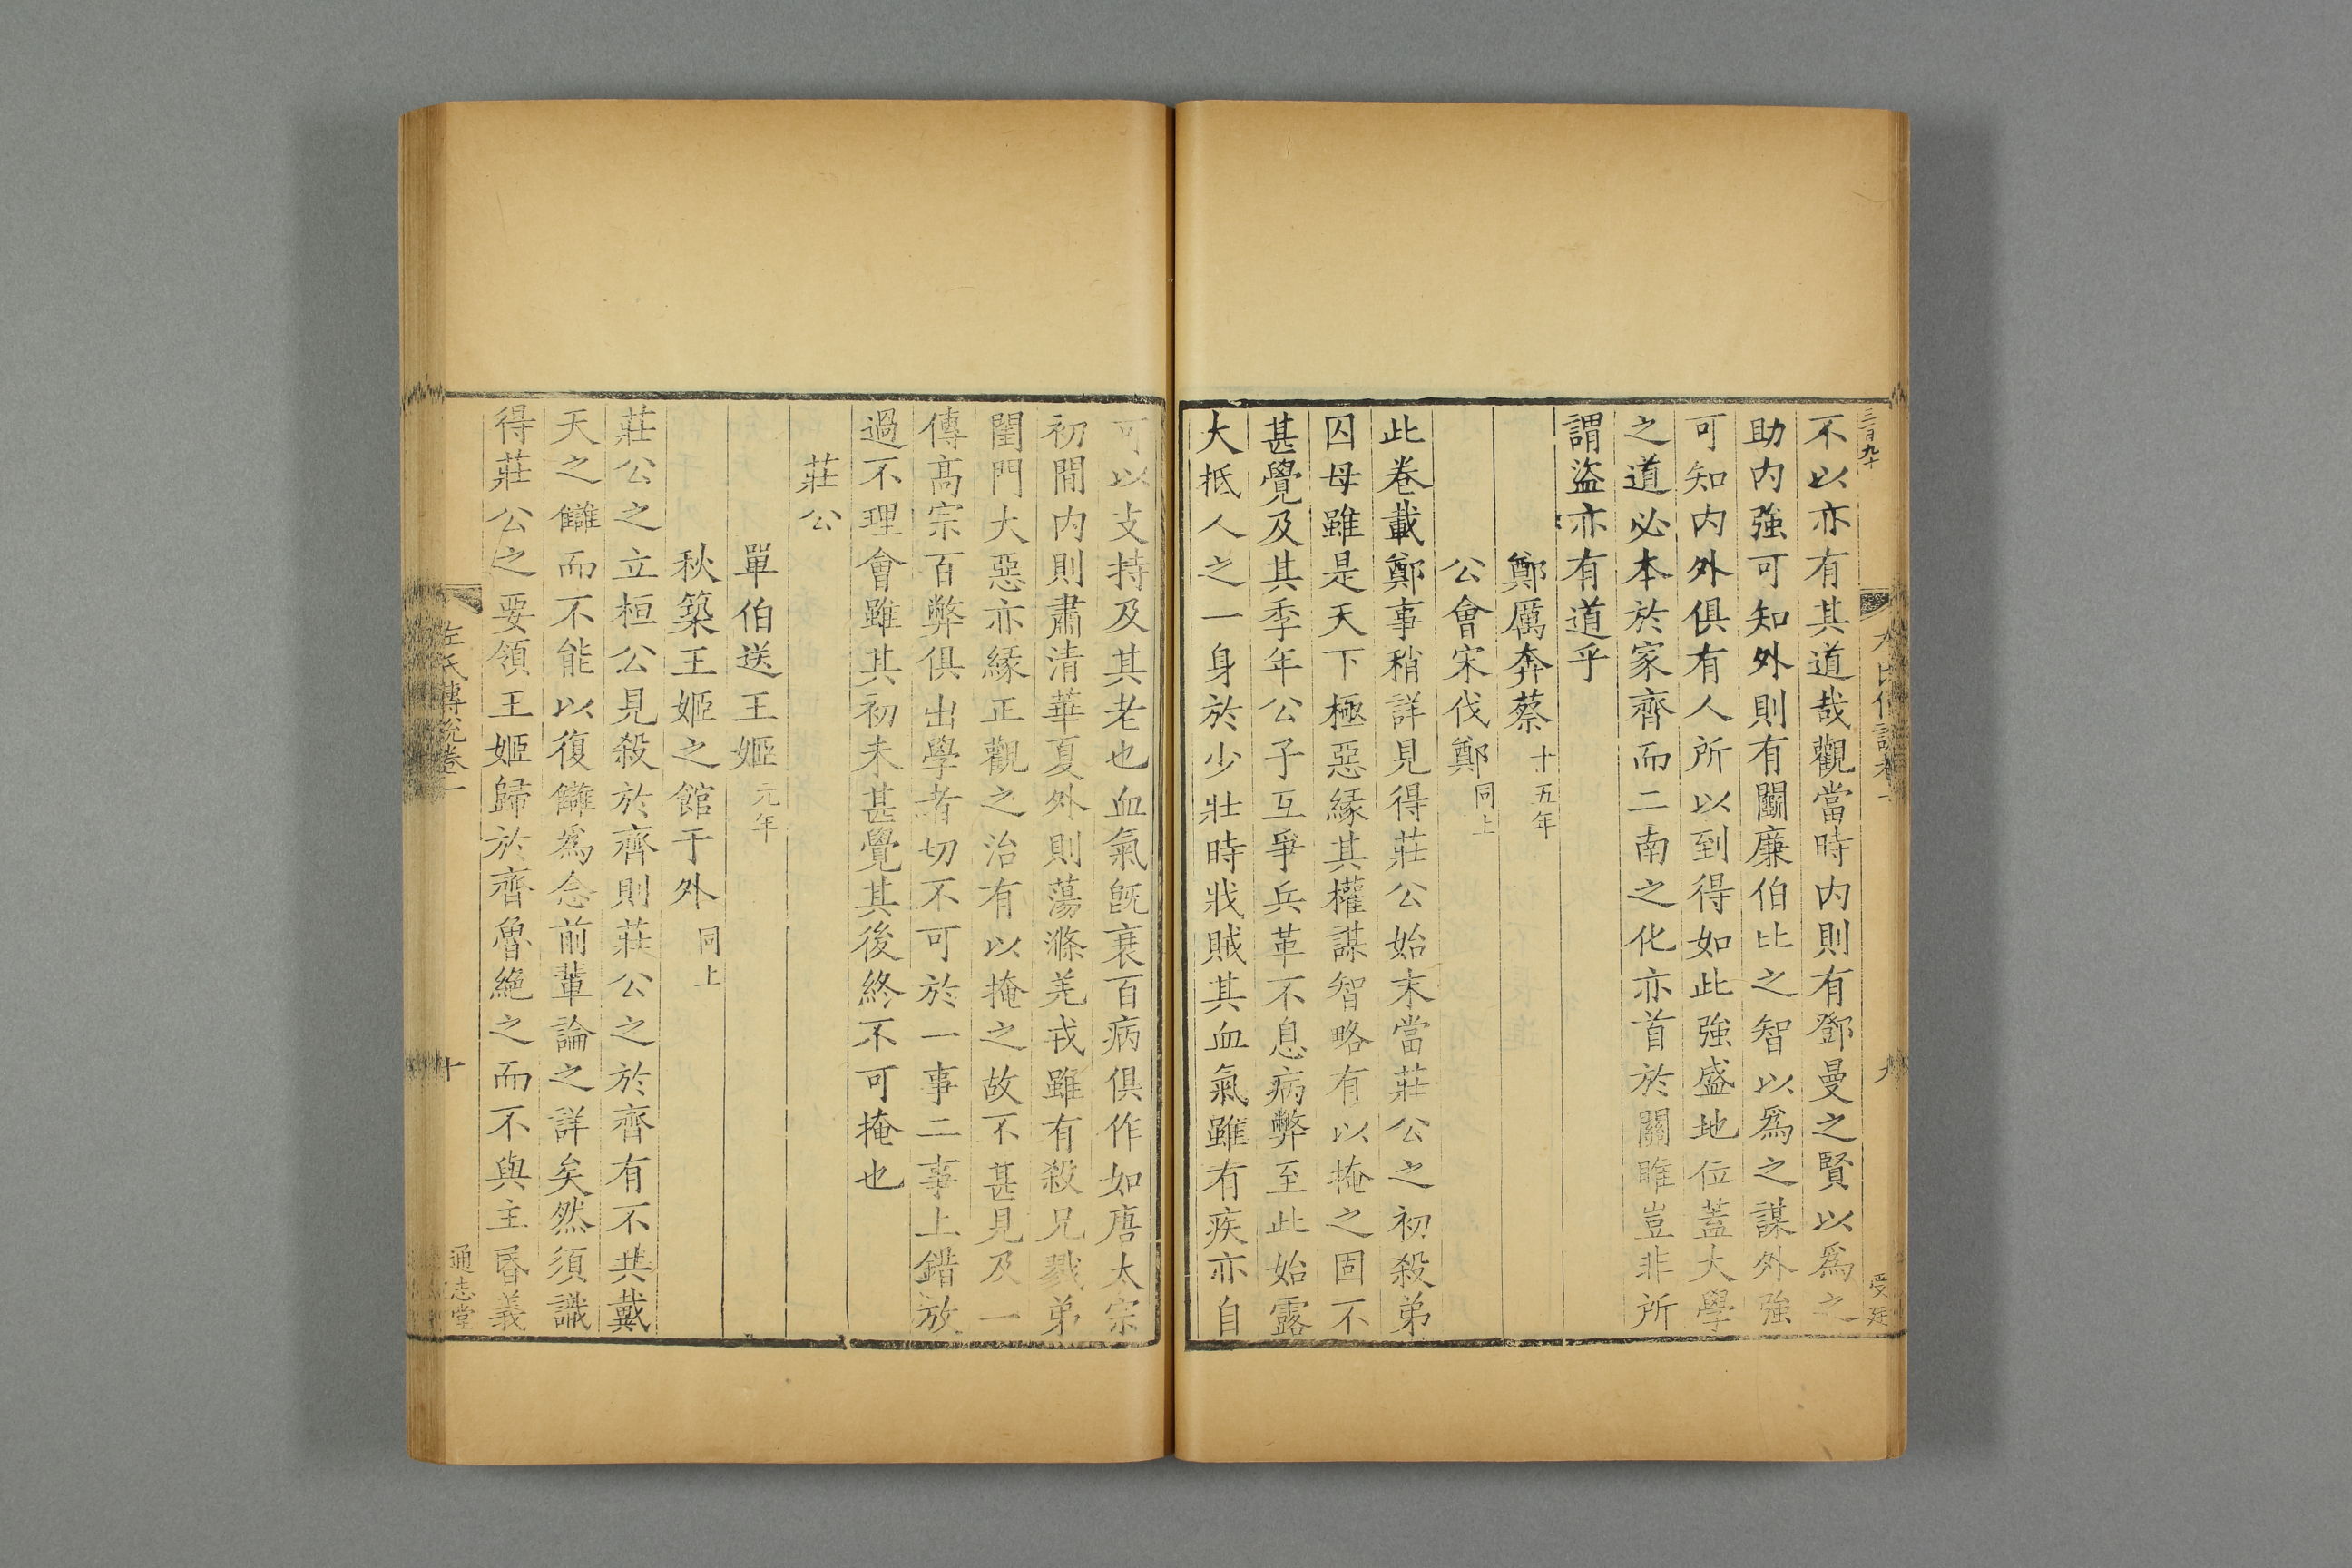 三百九十
九
受廷
不以亦有其道哉觀當時内則有鄧曼之賢以爲之
助内強可知外則有鬬廉伯比之智以爲之謀外強
可知内外俱有人所以到得如此強盛地位蓋大學
之道必本於家齊而二南之化亦首於關雎豈非所
謂盜亦有道乎
鄭厲奔蔡十五年
公會宋伐鄭同上
此卷載鄭事稍詳見得莊公始末當莊公之初殺弟
囚母雖是天下極惡緣其權謀智略有以掩之固不
甚覺及其季年公子互爭兵革不息病弊至此始露
大抵人之一身於少壯時戕賊其血氣雖有疾亦自
可以支持及其老也血氣旣衰百病俱作如唐太宗
初閒内則肅清華夏外則蕩滌羌戎雖有殺兄戮弟
閨門大惡亦緣正觀之治有以掩之故不甚見及一
傳高宗百弊俱出學者切不可於一事二事上錯放
過不理會雖其初未甚覺其後終不可掩也
莊公
單伯送王姬元年
秋築王姬之館于外同上
莊公之立桓公見殺於齊則莊公之於齊有不共戴
天之讎而不能以復讎爲念前輩論之詳矣然須識
得莊公之要領王姬歸於齊魯絶之而不與主昏義
左氏傳説卷一
十
通志堂